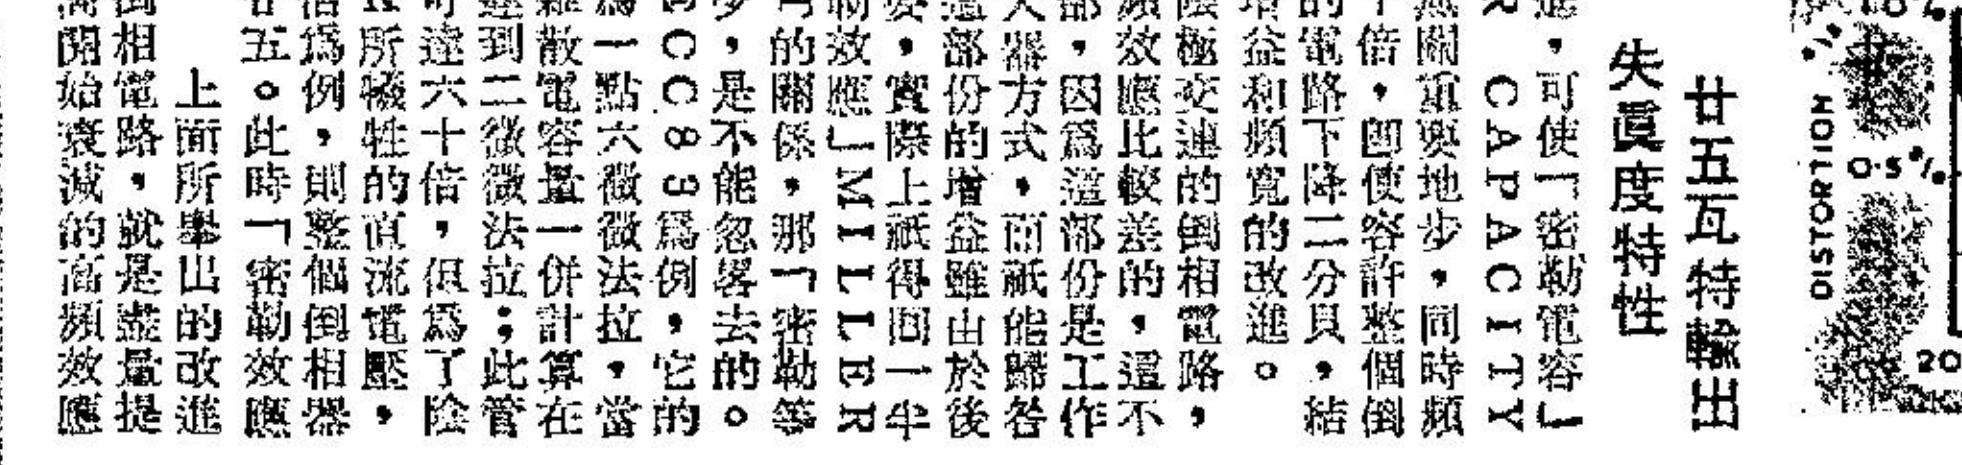 10%
DISTORTION %
0·5%
20
廿五瓦特輸出
失眞度特性
進，可使「密勒電容」
R CAPACITY
無關重要地步，同時頻
十倍，卽使容許整個倒
的電路下降二分貝，結
增益和頻寬的改進。
陰極交連的倒相電路，
頻效應比較差的，還不
部，因爲這部份是工作
大器方式，而祇能歸咎
這部份的增益雖由於後
要，實際上祇得回一半
勒效應」MILLER
的關係，那「密勒等
少，是不能忽畧去的。
CC83爲例，它的
爲一點六微微法拉，當
雜散電容量一併計算在
達到二微微法拉；此管
可達六十倍，但爲了陰
K所犧牲的直流電壓，
倍爲例，則整個倒相器
廿五。此時「密勒效應
上面所舉出的改進
倒相電路，就是盡量提
高開始衰減的高頻效應